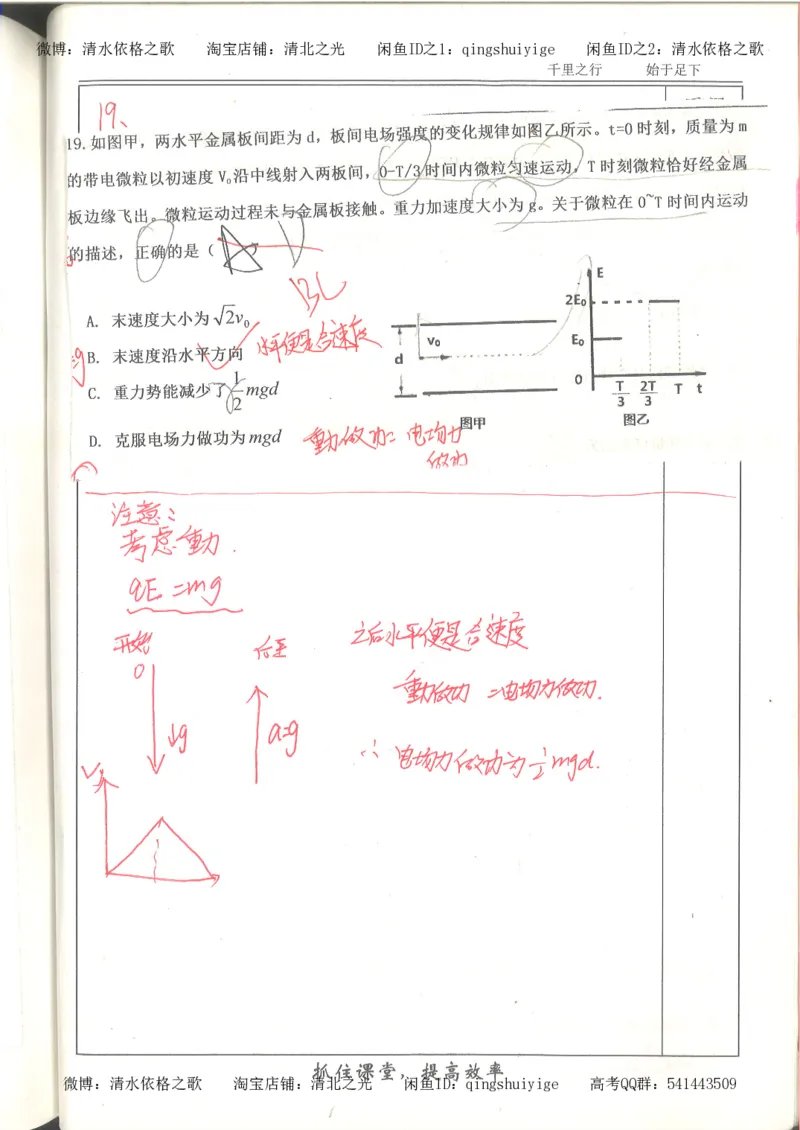 微博：清水依格之歌 淘宝店铺：清北之光 闲鱼ID之1：qingshuiyige 闲鱼ID之2：清水依格之歌
千里之行 始于足下
19、
19.如图甲，两水平金属板间距为d，板间电场强度的变化规律如图乙所示。t=0时刻，质量为m
的带电微粒以初速度V₀沿中线射入两板间，0-T/3时间内微粒匀速运动，T时刻微粒恰好经金属
板边缘飞出。微粒运动过程未与金属板接触。重力加速度大小为g。关于微粒在0~T时间内运动
的描述，正确的是（
BC
A. 末速度大小为√2v₀
B. 末速度沿水平方向 水平便是合速度
C. 重力势能减少了1/2mgd
D. 克服电场力做功为mgd 重力做功=电场力
做功
v₀
d
图甲
E
2E₀
E₀
0
T/3 2T/3 T t
图乙
注意：
考虑重力.
qE=mg
开始
0
↓g
a=g
V
之后水平便是合速度
重力做功=电场力做功.
∴电场力做功为1/2mgd.
抓住课堂，提高效率
微博：清水依格之歌 淘宝店铺：清北之光 闲鱼ID之2：qingshuiyige 高考QQ群：541443509